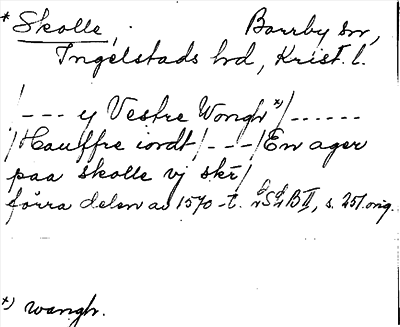 * Skolle, Borrby sn,
Ingelstads hd, Krist. l.
/--- y Vestre Wongh *)/......
/Hauffre iordt/---/En ager
paa skolle vj skr/
förra delen av 1570-t. B II, s. 251 orig.
*) wangh.